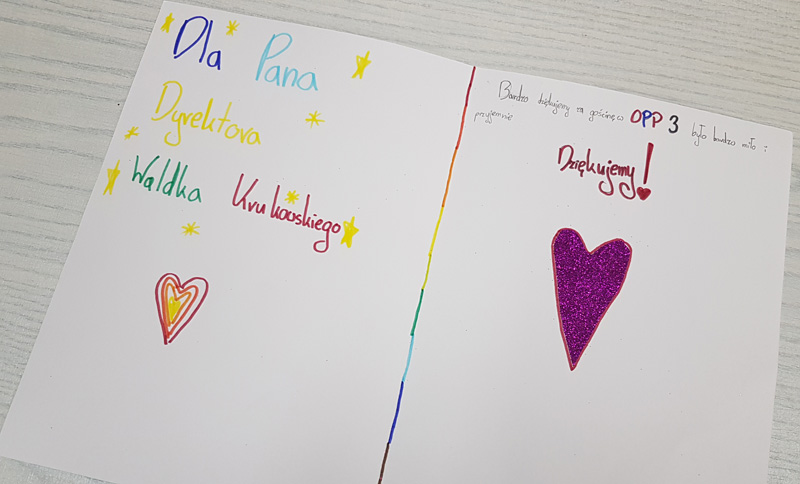 Dla Pana
Dyrektora
Waldka Krukowskiego
Bardzo dziękujemy za gościnę w OPP 3 było bardzo miło i
przyjemnie
Dziękujemy!